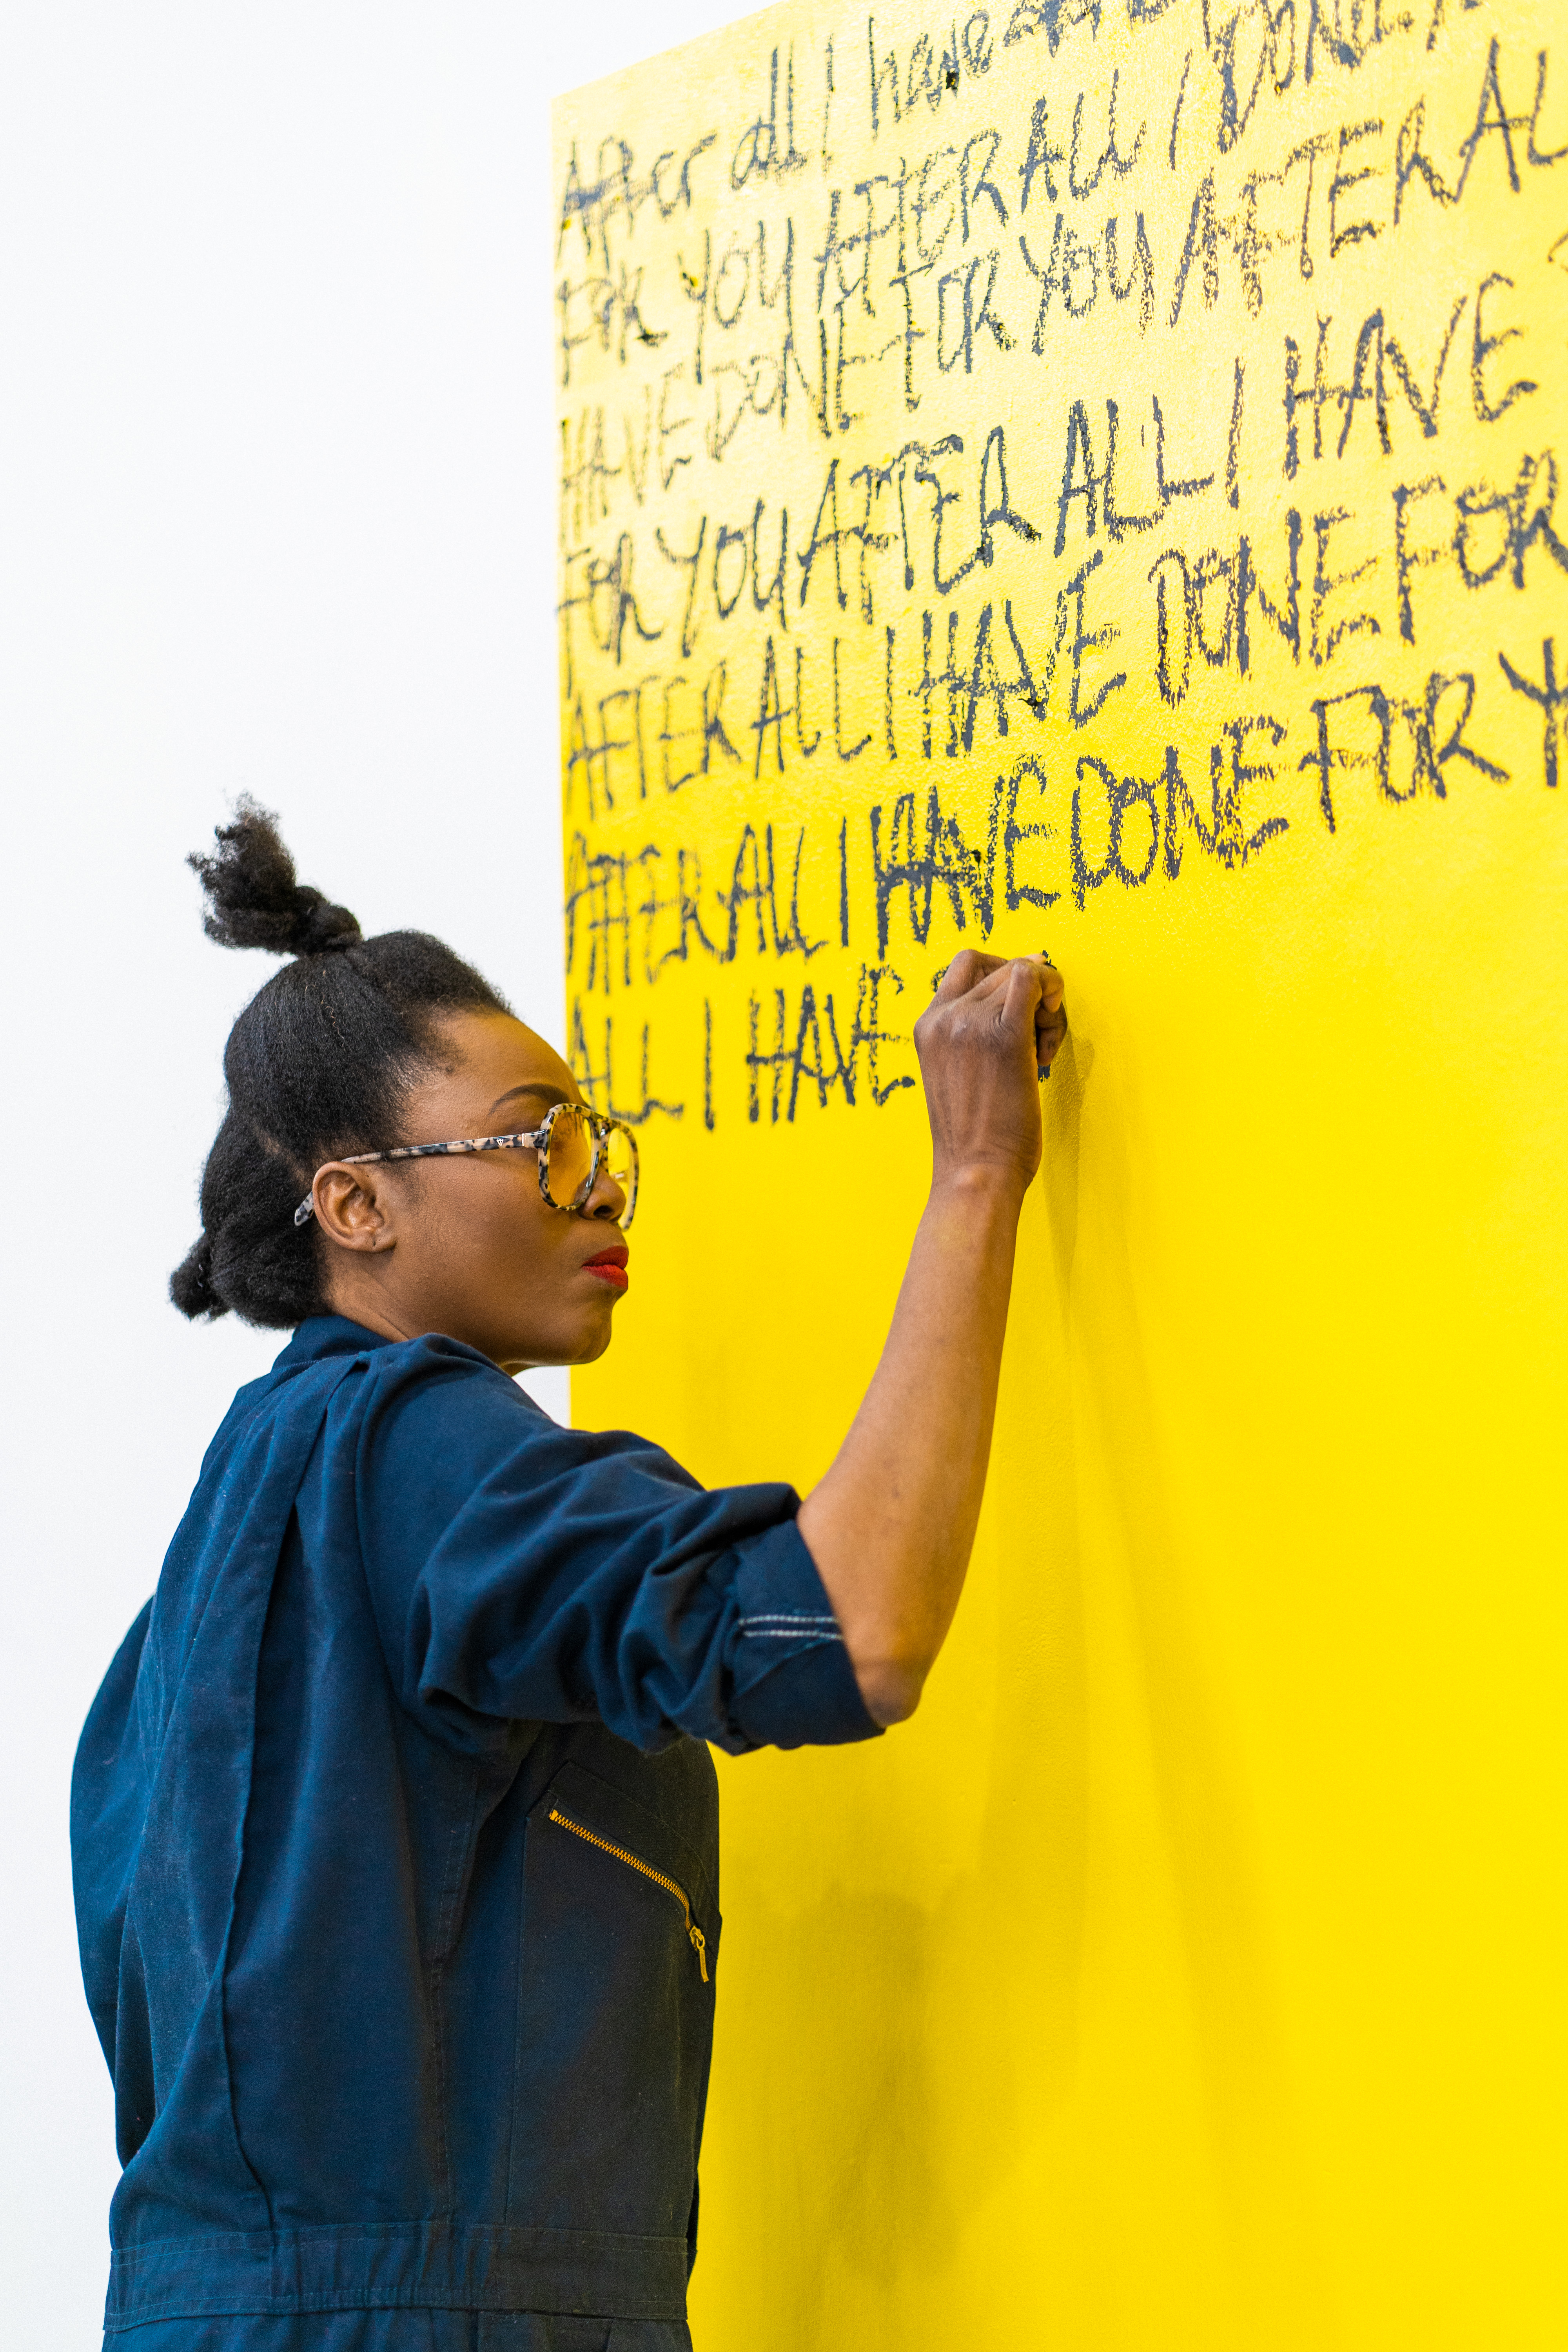 After all I have
FOR YOU AFTER ALL I DONE
HAVE DONE FOR YOU AFTER AL
FOR YOU AFTER ALL I HAVE
AFTER ALL I HAVE DONE FOR
AFTER ALL I HAVE DONE FOR Y
ALL I HAVE